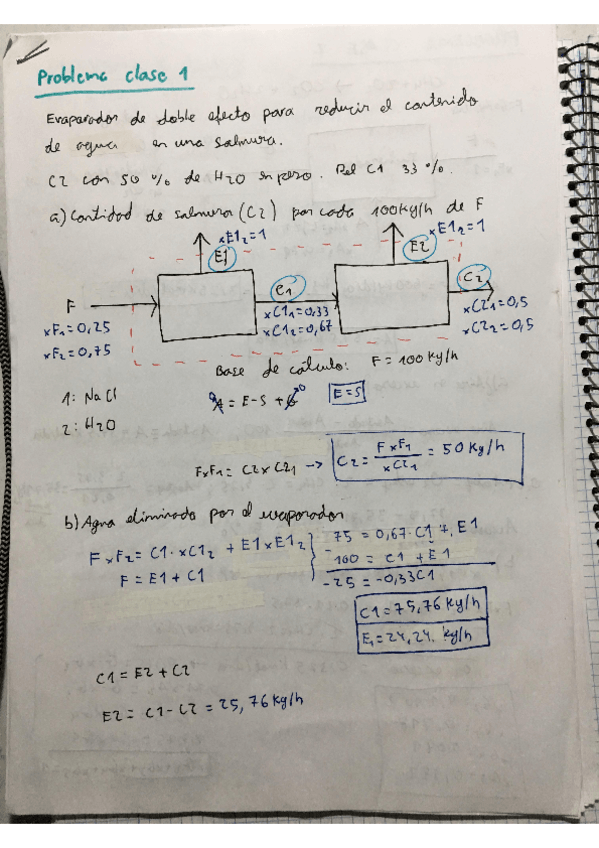 Problema clase 1
Evaporador de doble efecto para reducir el contenido
de agua en una salmura.
C2 con 50 % de H2O en peso. Del C1 33 %.
a) Cantidad de salmura (C2) por cada 100kg/h de F
xE1₂=1
xE2₂=1
E1
E2
C1
C2
F
xF₁=0,25
xF₂=0,75
xC1₁=0,33
xC1₂=0,67
xC2₁=0,5
xC2₂=0,5
Base de cálculo: F=100 kg/h
1: NaCl
2: H2O
A = E-S + G 0
E=S
FxF₁= C2xC2₁ -> C2 = FxF₁/xC2₁ = 50 Kg/h
b) Agua eliminada por el evaporador
FxF₂= C1·xC1₂ + E1xE1₂
F = E1 + C1
75 = 0,67·C1 + E1
100 = C1 + E1
-25 = -0,33C1
C1=75,76 kg/h
E₁=24,24 kg/h
C1 = E2 + C2
E2 = C1-C2 = 25,76 kg/h